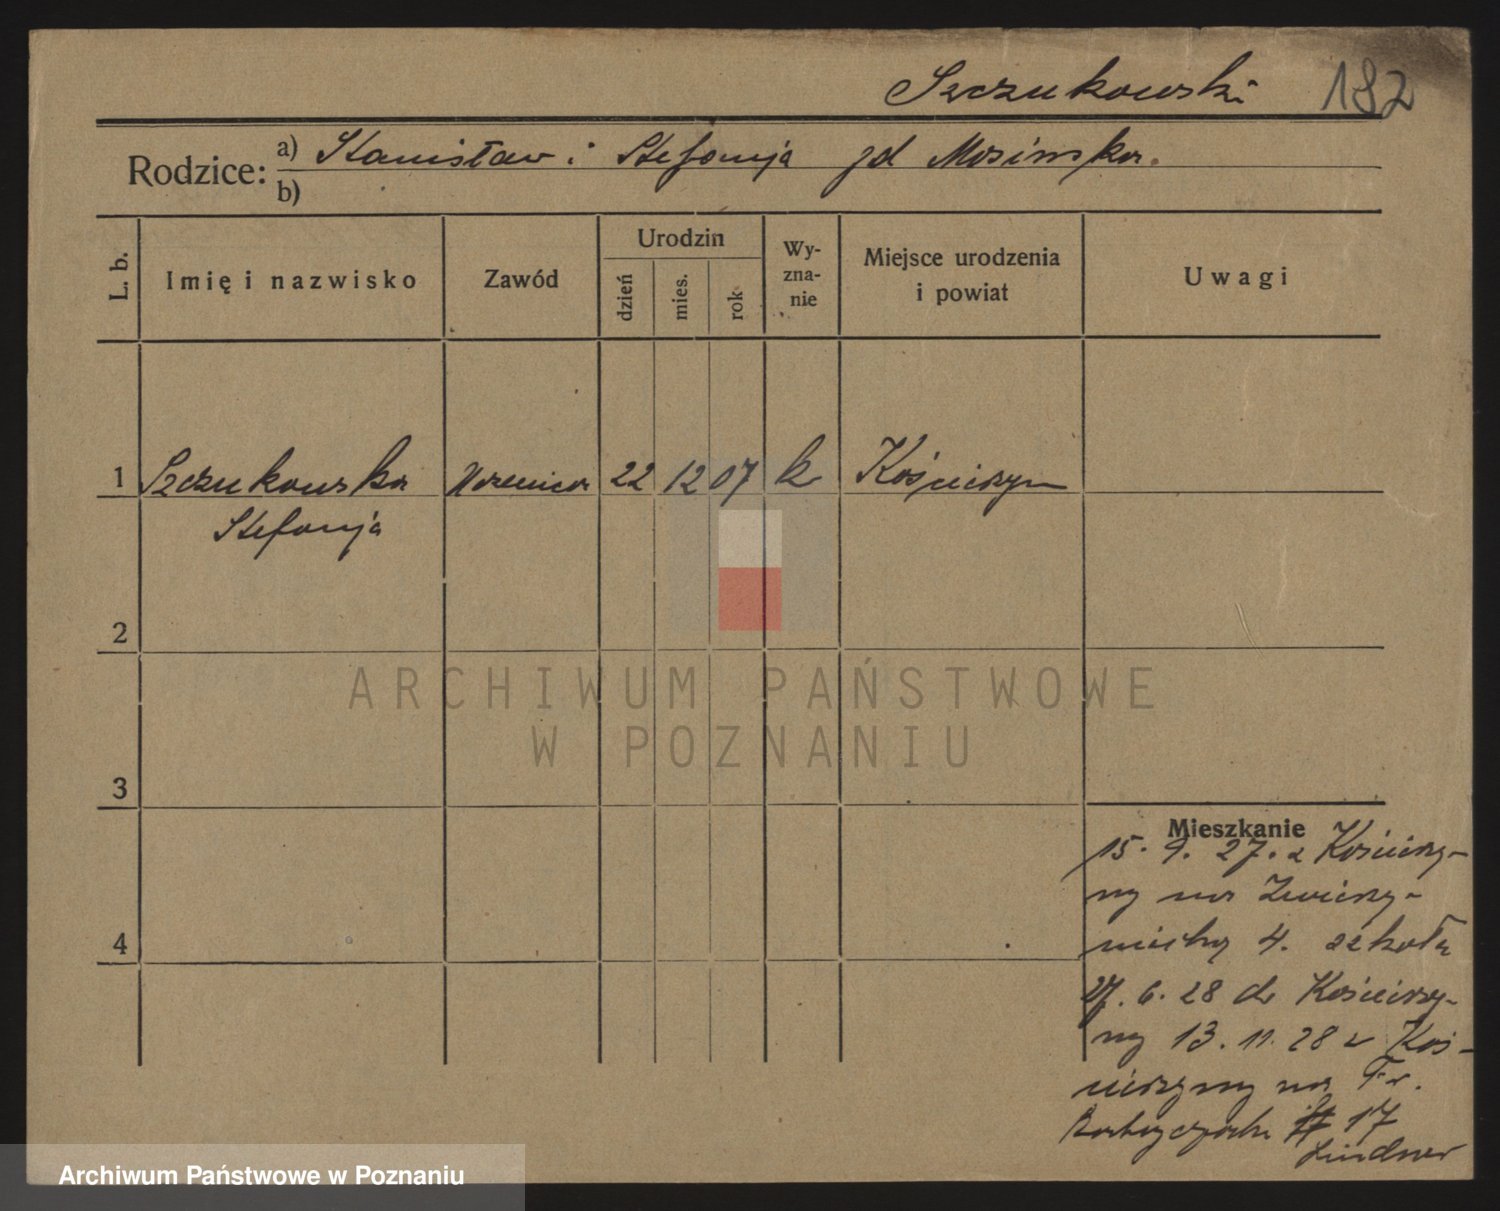 Szczukowski 182
Rodzice: a) Stanisław i Stefanja zd Mosińska.
b)
L. b. Imię i nazwisko Zawód Urodzin dzień mies. rok Wy-zna-nie Miejsce urodzenia i powiat Uwagi
1 Szczukowska Uczenica 22 12 07 k Kościerzyn
Stefanja
2
ARCHIWUM PAŃSTWOWE
W POZNANIU
3
Mieszkanie
15. 9. 27. z Kościerzy-
ny na Zwierzy-
niecką 4. szkoła
27. 6. 28 do Kościerzy-
4
ny 13. 11. 28 z Koś-
cierzyny na Fr.
Ratajczaka 17
Lindner
Archiwum Państwowe w Poznaniu